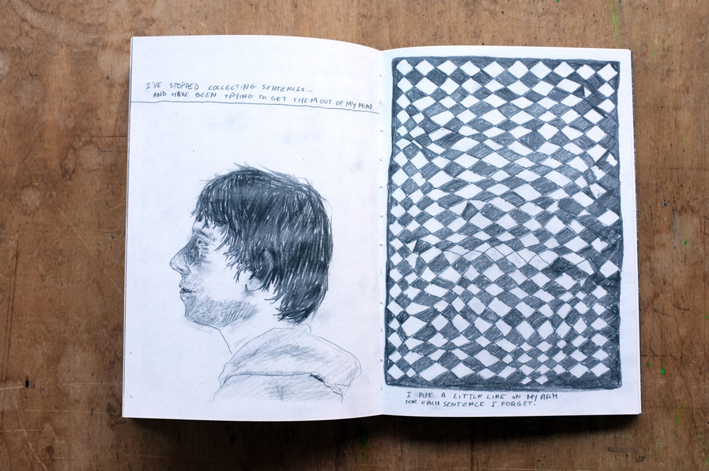 I'VE STOPPED COLLECTING SENTENCES...
AND HAVE BEEN TRYING TO GET THEM OUT OF MY MIND
I PUT A LITTLE LINE ON MY ARM
FOR EACH SENTENCE I FORGET.